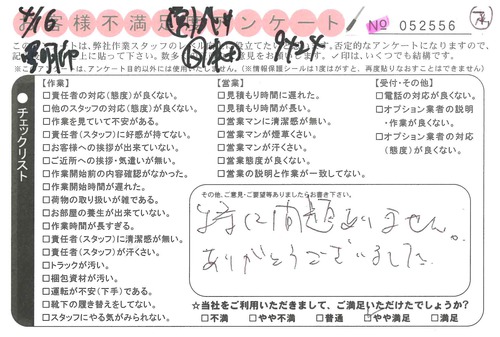 お客様不満足度アンケート
4/16
No 052556
9424
このアンケートは、弊社作業スタッフのレベル
否定的なアンケートになりますので、
に貼って下さい。
✓印は、いくつでも結構です。
※このアンケートは、アンケート目的以外には使用いたしません。(※情報保護シールは1度はがすと、再度貼りなおすことはできません)
チェックリスト
【作業】
□責任者の対応(態度)が良くない。
□他のスタッフの対応(態度)が良くない。
□作業を見ていて不安がある。
□責任者(スタッフ)に好感が持てない。
□お客様への挨拶が出来ていない。
□ご近所への挨拶・気遣いが無い。
□作業開始前の内容確認がなかった。
□作業開始時間が遅れた。
□荷物の取り扱いが雑である。
□お部屋の養生が出来ていない。
□作業時間が長すぎる。
□責任者(スタッフ)に清潔感が無い。
□責任者(スタッフ)が汗くさい。
□トラックが汚い。
□梱包資材が汚い。
□運転が不安(下手)である。
□靴下の履き替えをしてない。
□スタッフにやる気がみられない。
【営業】
□見積もり時間に遅れた。
□見積もり時間が長い。
□営業マンに清潔感が無い。
□営業マンが煙草くさい。
□営業マンが汗くさい。
□営業態度が良くない。
□営業の説明と作業が一致してない。
【受付・その他】
□電話の対応が良くない。
□オプション業者の説明
・作業が良くない。
□オプション業者の対応
(態度)が良くない。
その他、ご意見・ご要望等ありましたらお書き下さい。
特に問題ありません。
ありがとうございました。
☆当社をご利用いただきまして、ご満足いただけたでしょうか?
□不満 □やや不満 □普通 ☑やや満足 □満足